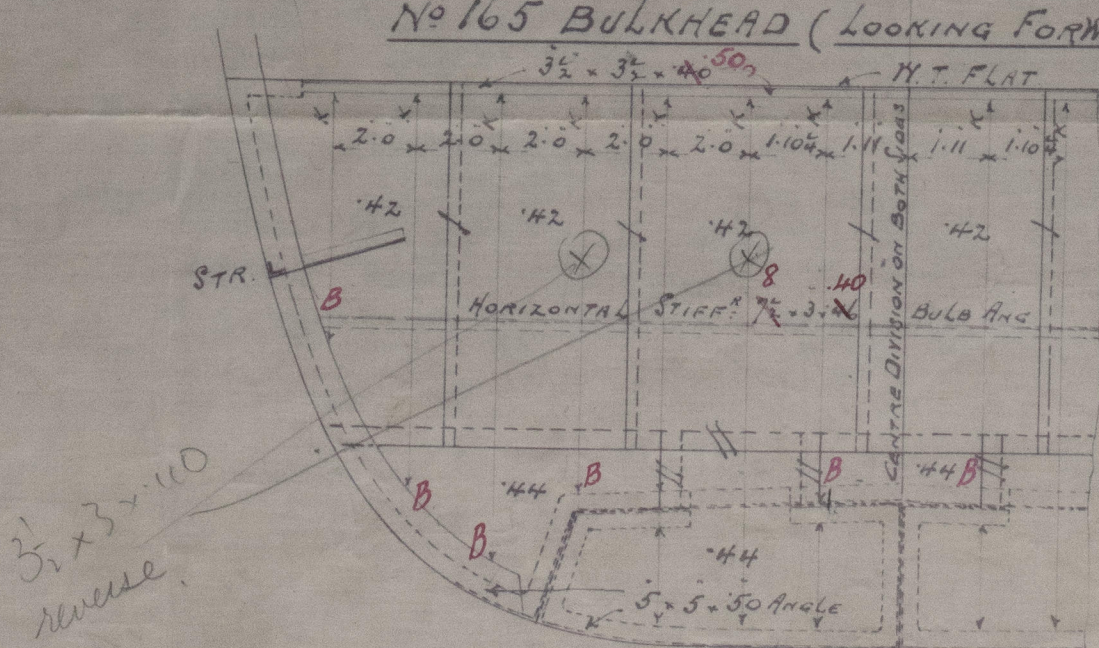 Nº 165 BULKHEAD (LOOKING FORW
3½ × 3½ × 40 50
W.T. FLAT
K K K K K K K K K
2.0 2.0 2.0 2.0 2.0 1.10¼ 1.11 1.11 1.10¼
.42 .42 .42 .42
STR.
B
HORIZONTAL STIFFR 7½ × 3 × 46 BULB ANG
8 .40
CENTRE DIVISION ON BOTH SIDES
B B B B B
.44 .44
.44
5 × 5 × .50 ANGLE
3½ × 3 × .40
reverse.